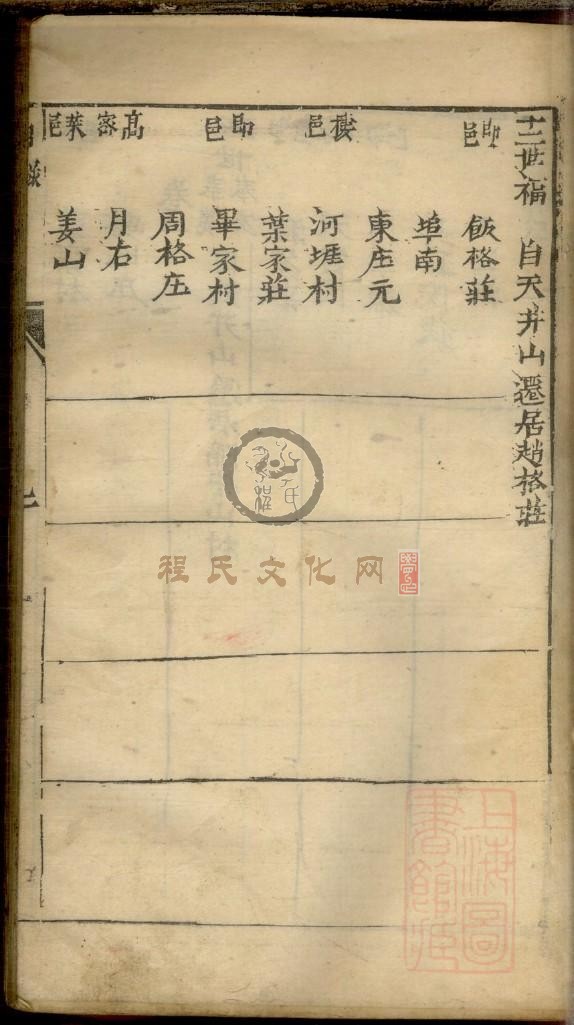 十二世福 自天井山遷居趙格莊
即邑 飯格莊
埠南
東庄元
棲邑 河堐村
葉家莊
即邑 畢家村
周格庄
高密 月右
萊邑 姜山
程氏文化网
上海圖書館藏